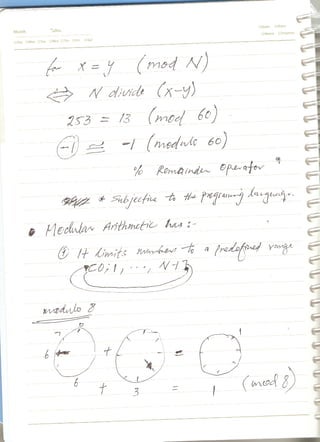 for x = y (mod N)
⟺ N divide (x-y)
253 = 13 (mod 60)
-1 ≅ -1 (modulo 60)
% Remainder operator "
* Subjective to the programing language.
• Modular Arithmetic has :-
① It limits numbers to a predefined range
{0, 1, ..., N-1}
modulo 8
7 8 1
6 + =
6 + 3 = 1 (mod 8)